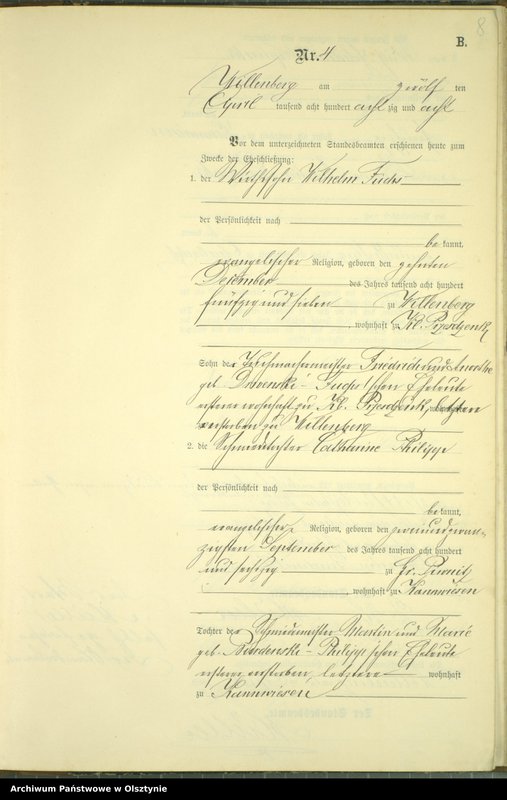 8
B.
Nr. 4
Willenberg am zwölf ten
April tausend acht hundert acht zig und acht
Vor dem unterzeichneten Standesbeamten erschienen heute zum
Zwecke der Eheschließung:
1. der Wirthssohn Wilhelm Fuchs
der Persönlichkeit nach
be kannt,
evangelischer Religion, geboren den zehnten
Dezember des Jahres tausend acht hundert
fünfzig und sieben zu Willenberg
, wohnhaft zu Kl.
Sohn des Tuchmachermeister Friedrich und
geb. Fuchs'schen Eheleute
ersterer wohnhaft zu Kl. letztere
verstorben zu Willenberg
2. die Catharine Philipp
der Persönlichkeit nach
be kannt,
evangelischer Religion, geboren den zweiundzwan-
zigsten September des Jahres tausend acht hundert
und sechszig zu Gr. Piwnitz
, wohnhaft zu Kannwiesen
Tochter des Schmiedemeister Martin und Marie
geb. Philipp'schen Eheleute
ersterer verstorben, letztere wohnhaft
zu Kannwiesen
Der Standesbeamte.
Archiwum Państwowe w Olsztynie